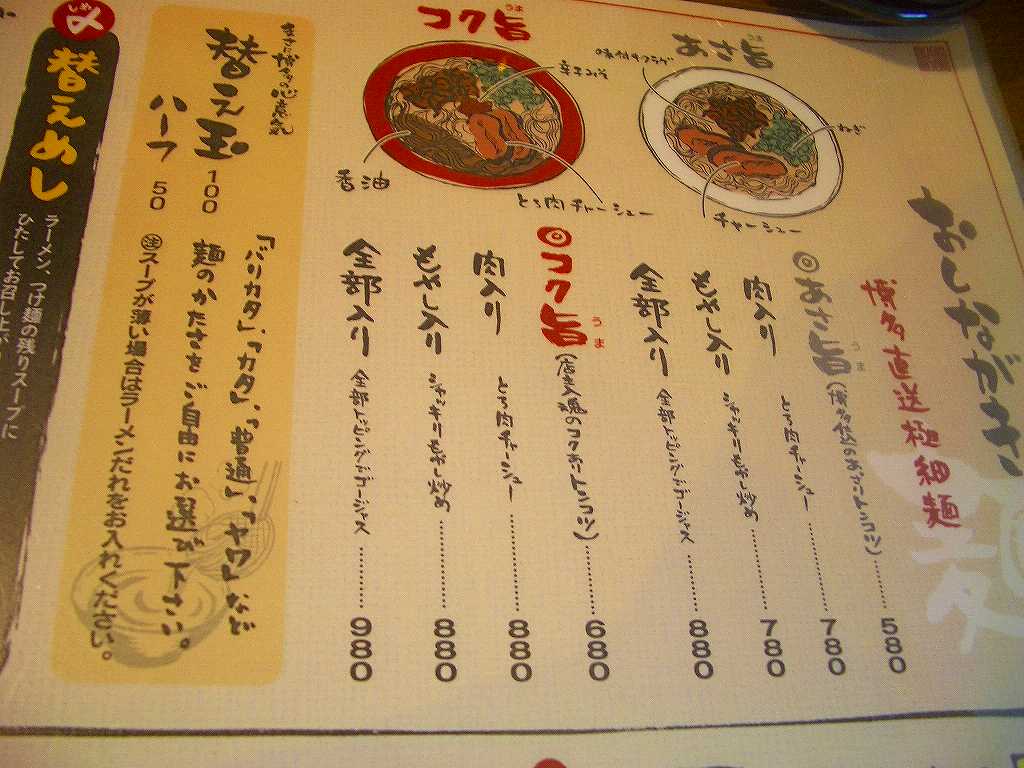 おしながき
麺
博多直送極細麺
あさ旨
うま
味付キクラゲ
ねぎ
チャーシュー
◎あさ旨(博多仕込のあさりトンコツ)……580
うま
肉入り とろ肉チャーシュー……780
もやし入り シャッキリもやし炒め……780
全部入り 全部トッピングでゴージャス……880
コク旨
うま
辛子みそ
香油
とろ肉チャーシュー
◎コク旨(店主入魂のコクありトンコツ)……680
うま
肉入り とろ肉チャーシュー……880
もやし入り シャッキリもやし炒め……880
全部入り 全部トッピングでゴージャス……980
まさに博多の心意気
替え玉 100
ハーフ 50
「バリカタ」、「カタ」、「普通」、「ヤワ」など
麺のかたさをご自由にお選び下さい。
注スープが薄い場合はラーメンだれをお入れください。
しめ
〆
替えめし
ラーメン、つけ麺の残りスープに
ひたしてお召し上が